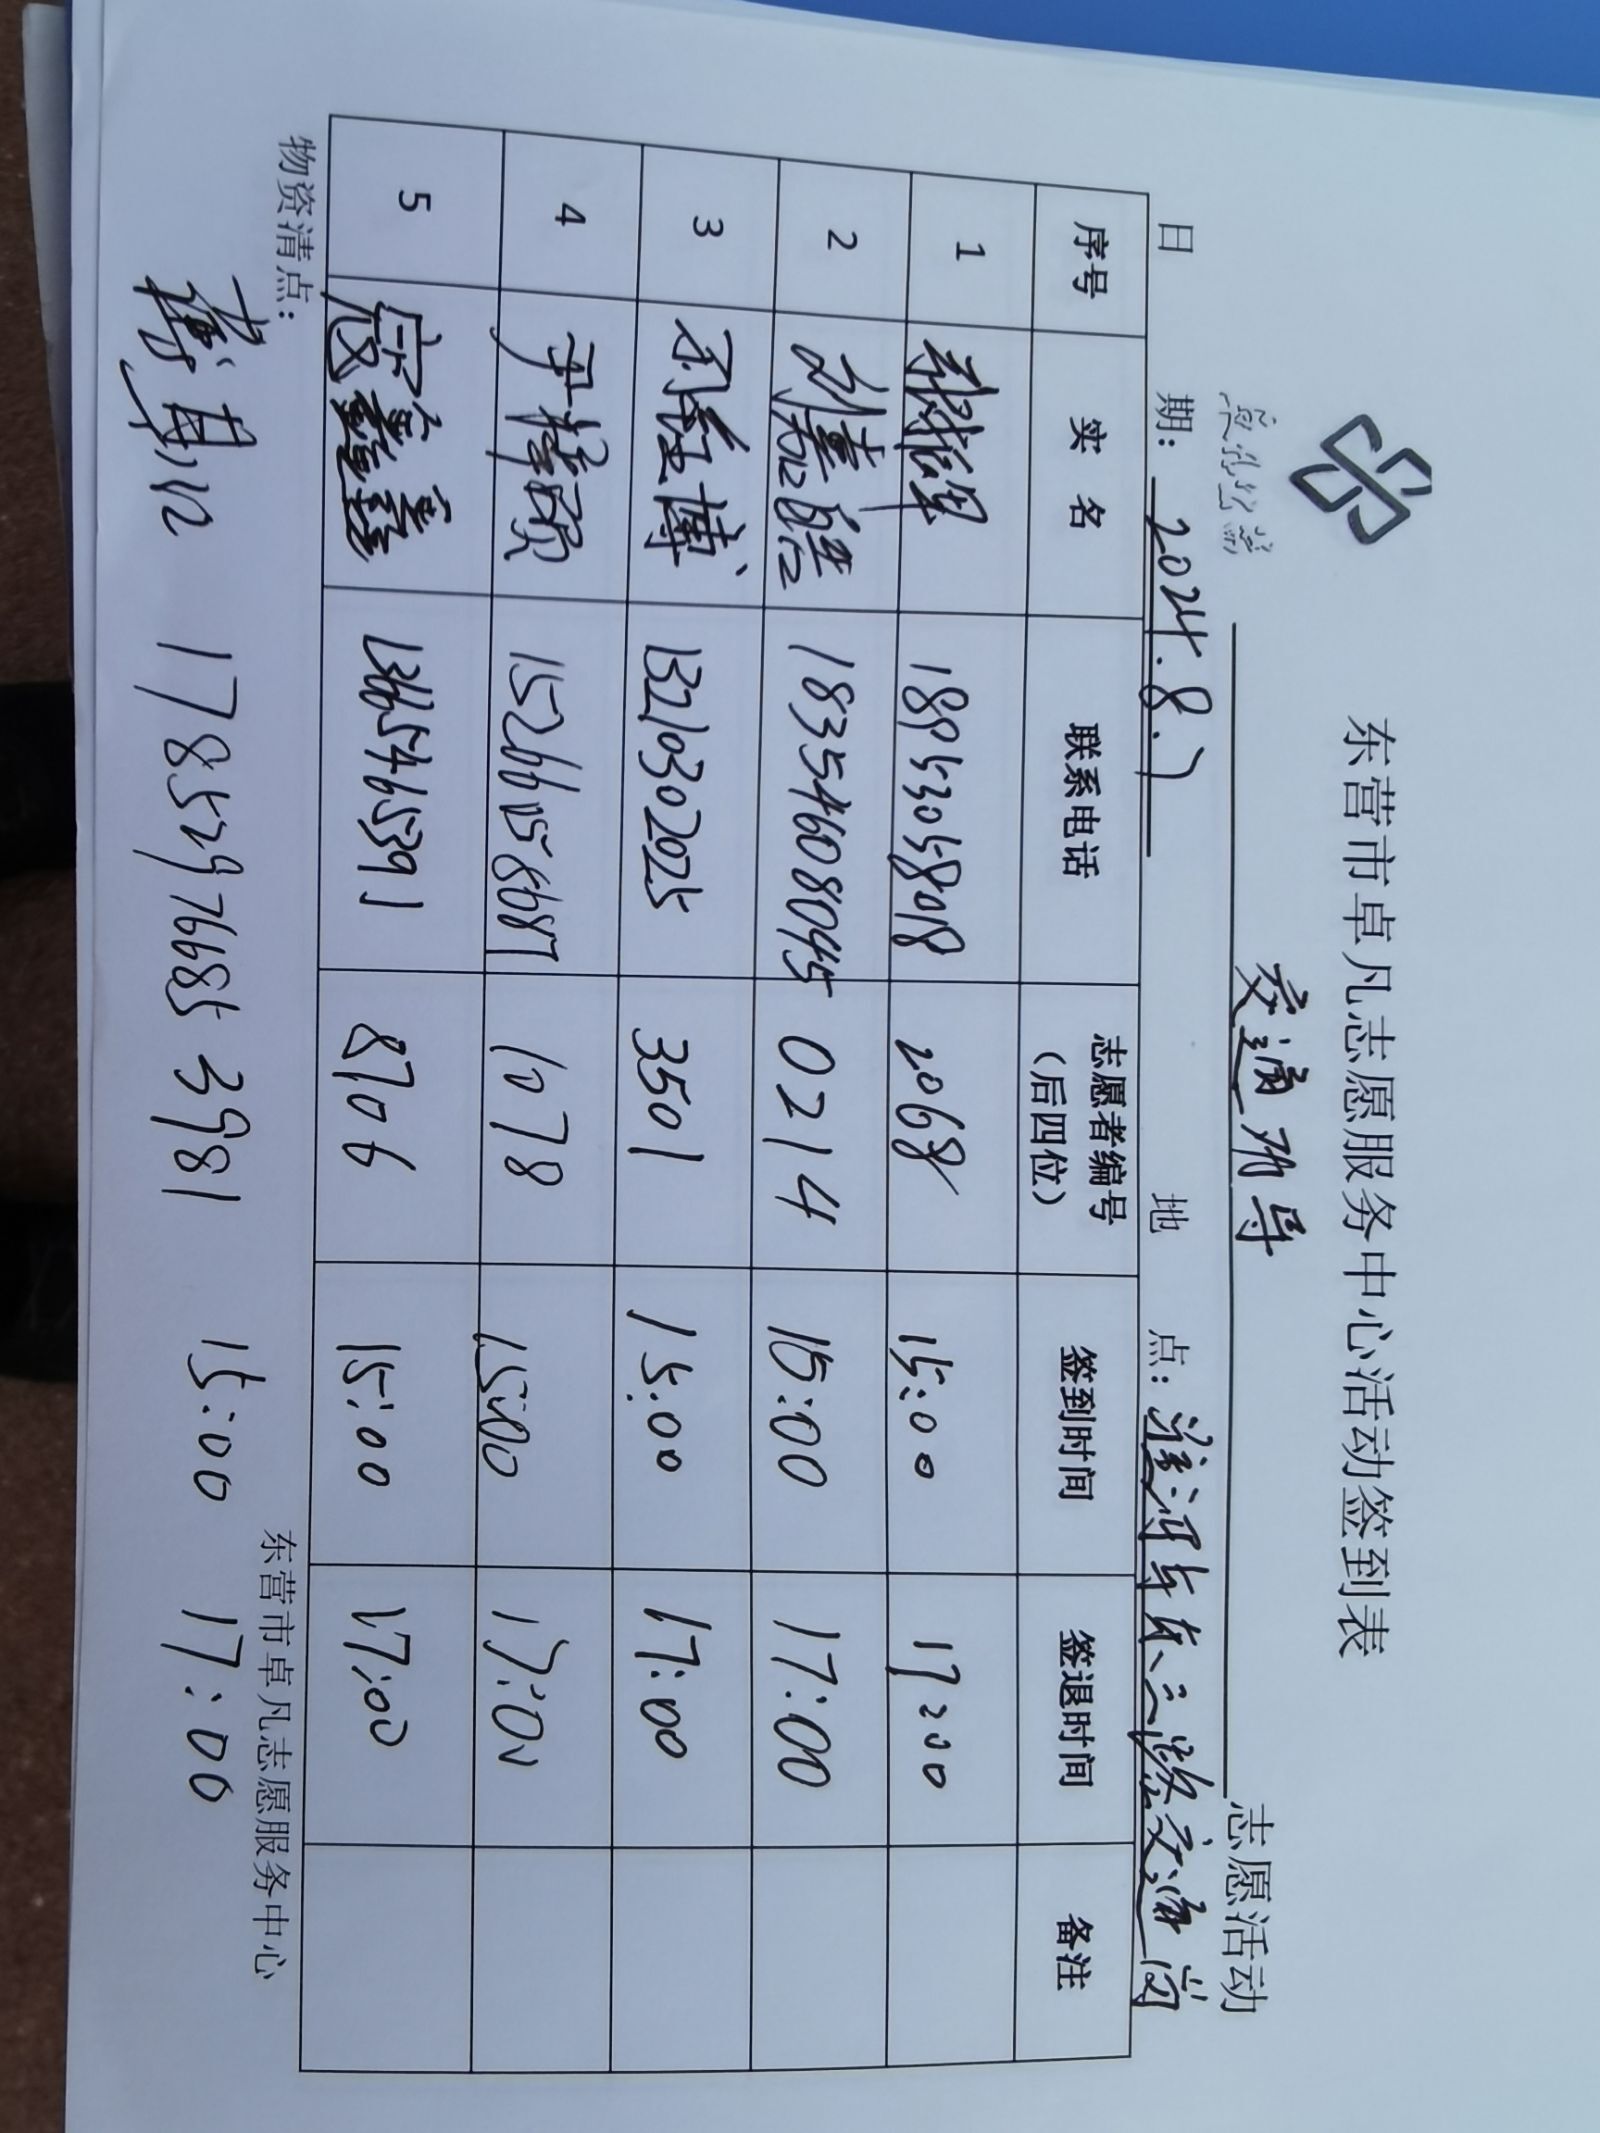 东营市卓凡志愿服务中心活动签到表
交通劝导 志愿活动
日 期：2024.8.7 地 点：淮河东三路交通岗
序号 实 名 联系电话 志愿者编号（后四位） 签到时间 签退时间 备注
1 18953058018 2068 15:00 17:00
2 18354608045 0214 15:00 17:00
3 13210302025 3501 15:00 17:00
4 15266058687 1078 15:00 17:00
5 寇鑫鑫 13665465391 8706 15:00 17:00
物资清点：
东营市卓凡志愿服务中心
17852976685 3981 15:00 17:00